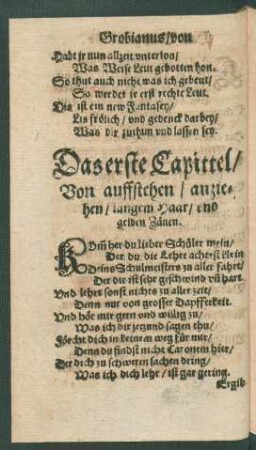 Grobianus/von
Habt jr nun allzeit vnterlon/
Was Weise Leut gebotten hon.
So thut auch nicht was ich gebeut/
So werdet jr erst rechte Leut.
Diß ist ein new Fantasey/
Liß frölich/ vnd gedenck darbey/
Was dir zuthun vnd lassen sey.
Das erste Capittel/
Von auffstehen/ anzie-
hen/ langem Haar/ vnd
gelben Zänen.
KOm̃ her du lieber Schüler mein/
Der du die Lehre achtest klein
Deins Schulmeisters zu aller fahrt/
Der dir ist sehr geschwind vñ hart
Vnd lehrt sonst nichts zu aller zeit/
Denn nur von grosser Dapfferkeit.
Vnd hör mir gern vnd willig zu/
Was ich dir jetzund sagen thu/
Förcht dich in keinem weg für mir/
Denn du findst nicht Catonem hier/
Der dich zu schweren sachen dring/
Was ich dich lehr/ ist gar gering.
Ergib